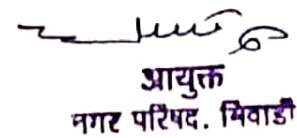 आयुक्त
नगर परिषद. भिवाडी